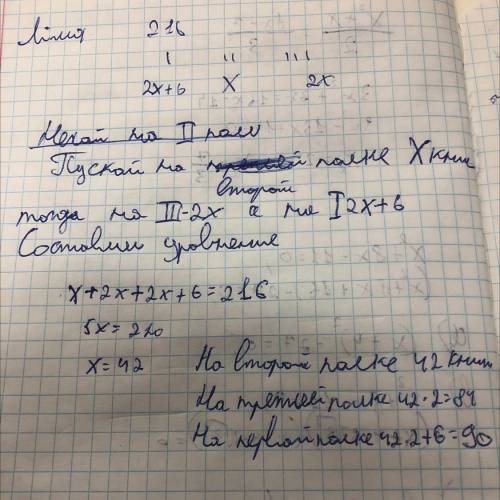 216
I II III
2x+6 X 2x
Нехай на II поли
Пускай на полке X книг
второй
тогда на III-2x а на I 2x+6
Составим уровнение
x+2x+2x+6=216
5x=210
x=42
На второй полке 42 книги
На третей полке 42·2=84
На первой полке 42·2+6=90